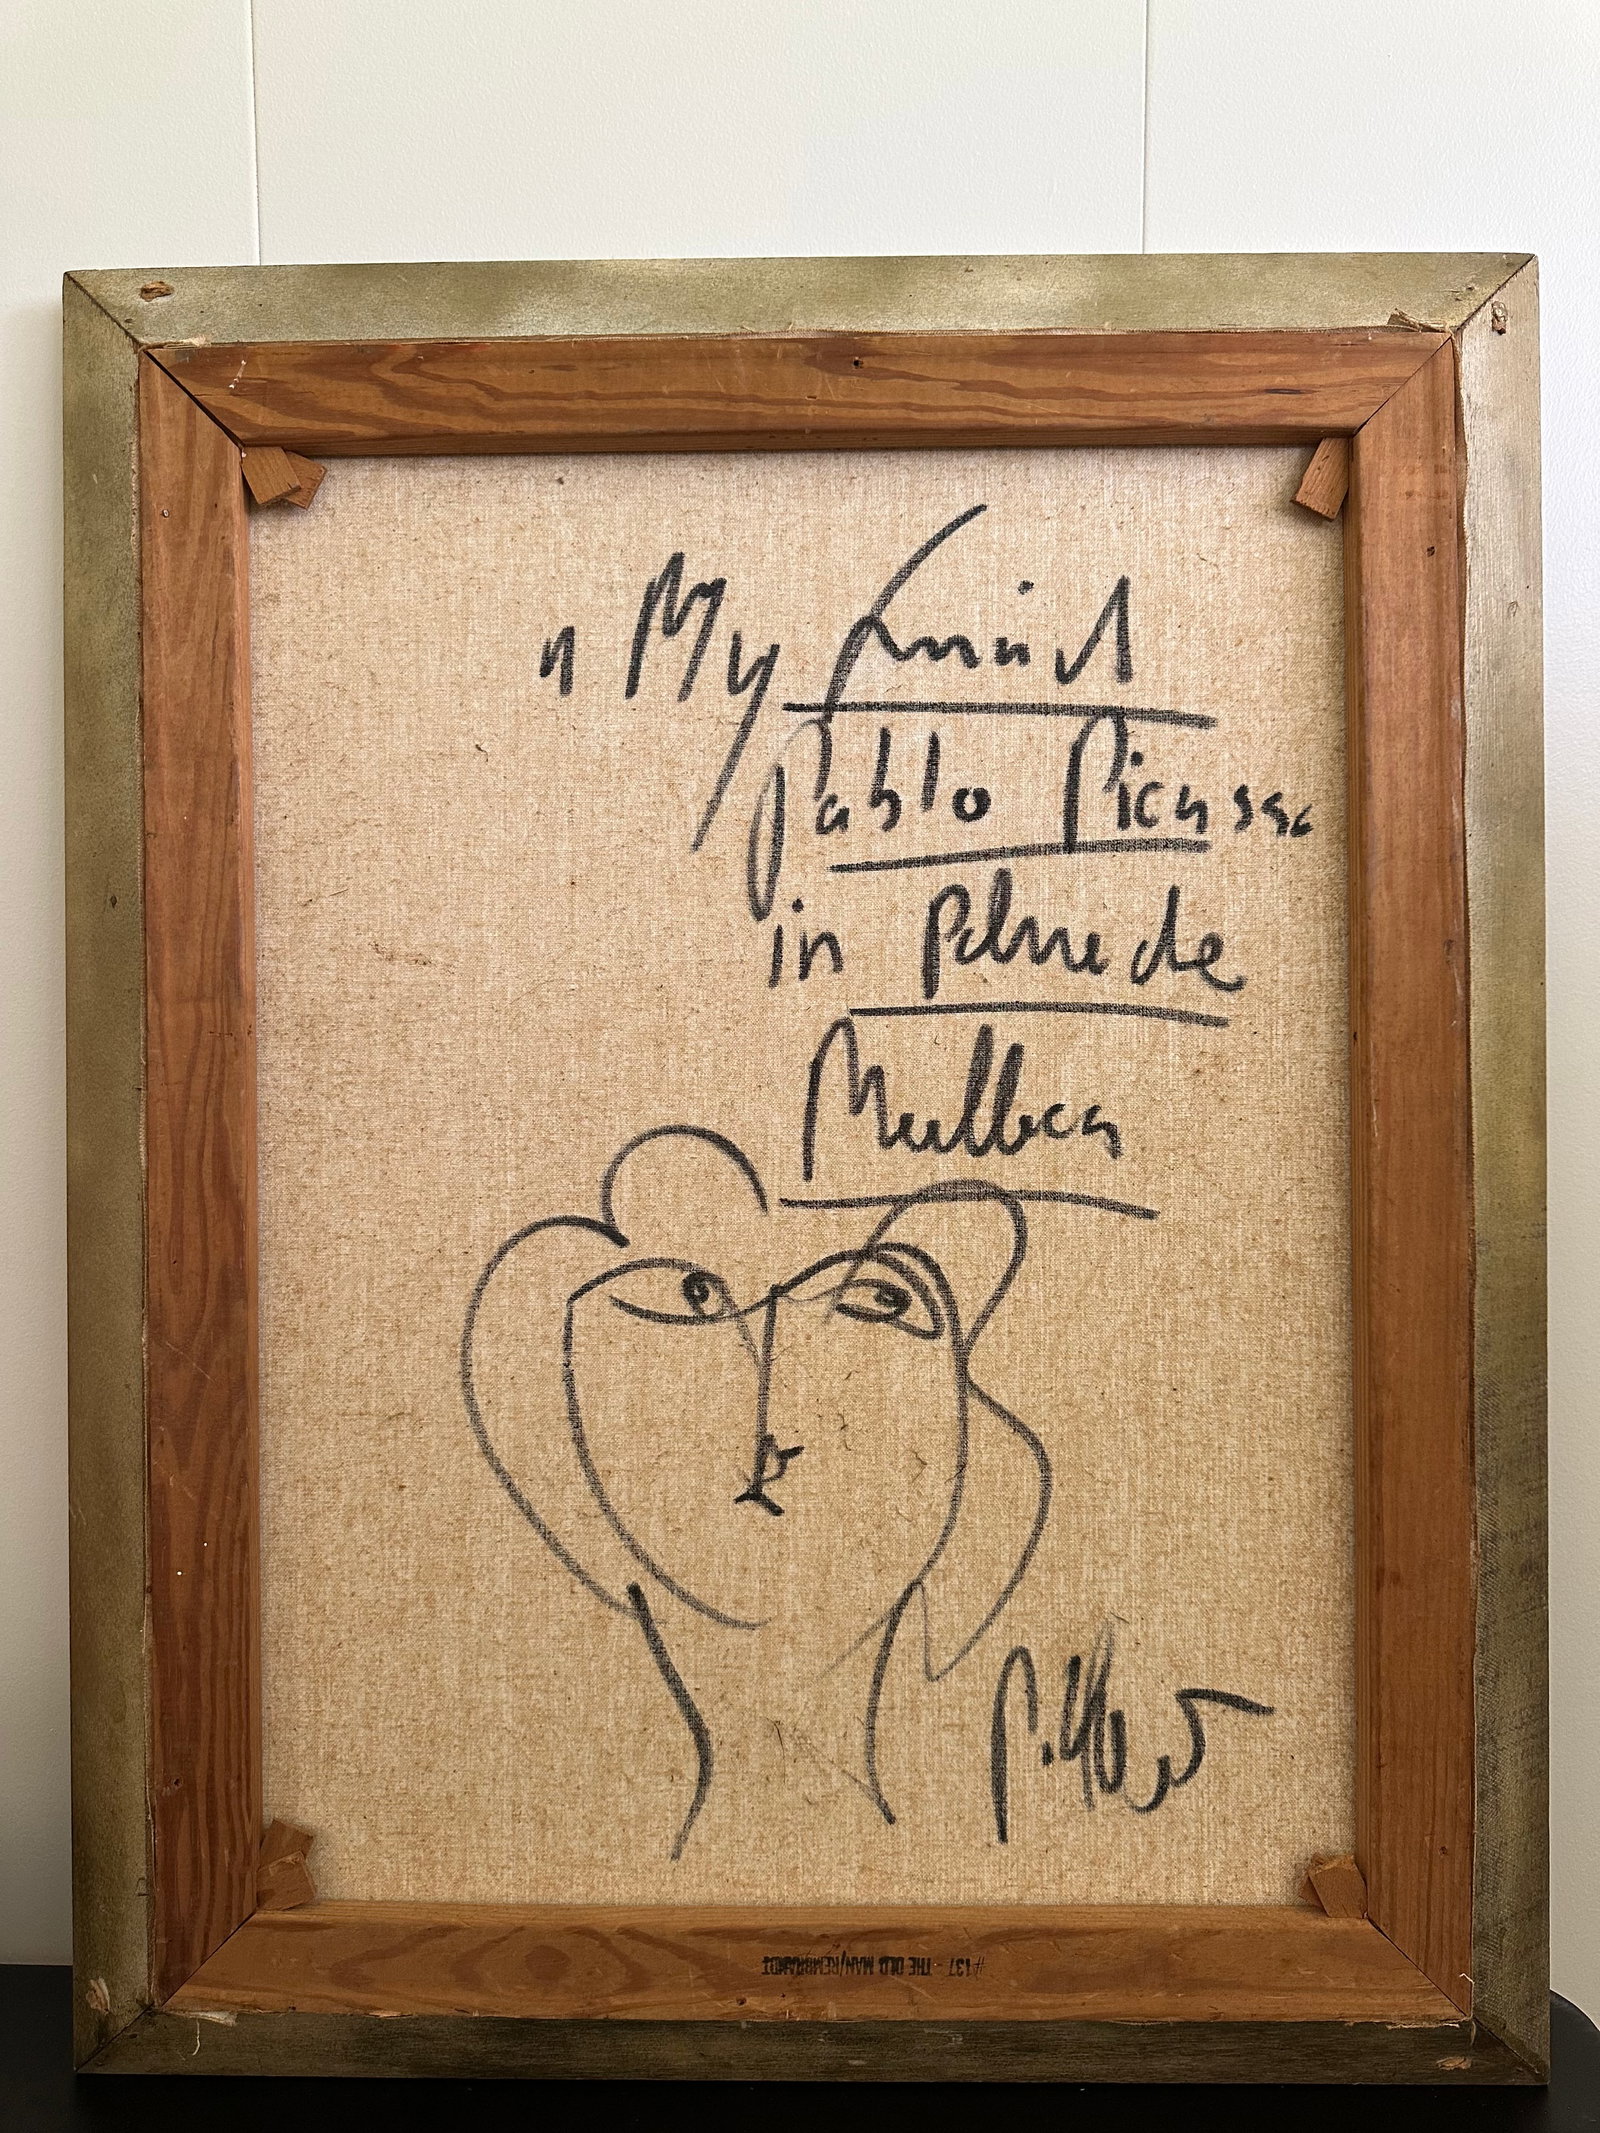 " My friend
Pablo Picasso
in Palma de
Mallorca
#137 - THE OLD MAN/REMBRANDT